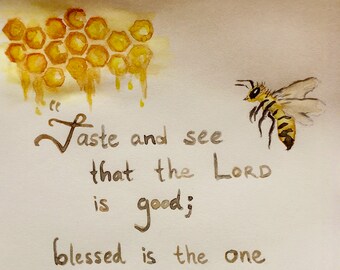 "Taste and see
that the LORD
is good;
blessed is the one